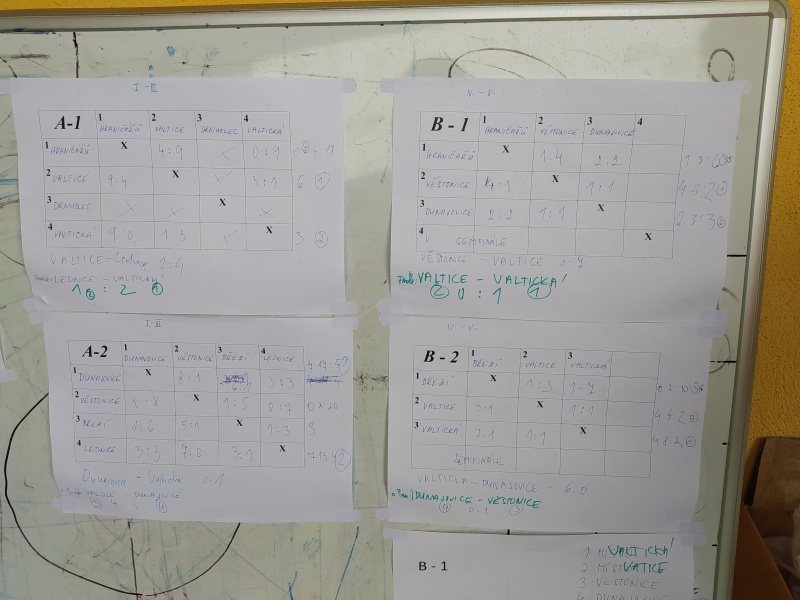 I. - III.
A-1 1 HRANIČÁŘŮ 2 VALTICE 3 DRNHOLEC 4 VALTICKÁ
1 HRANIČÁŘŮ X 4:9 0:9
2 VALTICE 9:4 X 3:1 6 1
3 DRNHOLEC X
4 VALTICKÁ 9:0 1:3 X 3 2
VALTICE - 2:4
LEDNICE - VALTICKÁ
1 2 : 2 1
V. - V.
B - 1 1 HRANIČÁŘŮ 2 VĚSTONICE 3 DUNAJOVICE 4
1 HRANIČÁŘŮ X 1:4 2:2
2 VĚSTONICE 4:1 X 1:1 4 5:2
3 DUNAJOVICE 2:2 1:1 X 2 3:3
4 V SEMIFINÁLE X
VĚSTONICE - VALTICE 0:7
VALTICE - VALTICKÁ
2 0 : 1 1
I. - III.
A-2 1 DUNAJOVICE 2 VĚSTONICE 3 BŘEZÍ 4 LEDNICE
1 DUNAJOVICE X 8:1 3:3
2 VĚSTONICE 1:8 X 1:5 0:7
3 BŘEZÍ 1:6 5:1 X 1:3 3
4 LEDNICE 3:3 7:0 3:1 X 7 13:4 2
Dunajovice - Valtická 0:1
VALTICE - DUNAJOVICE
V. - V.
B - 2 1 BŘEZÍ 2 VALTICE 3 VALTICKÁ
1 BŘEZÍ X 1:3 1:7
2 VALTICE 3:1 X 1:1 4 4:2
3 VALTICKÁ 7:1 1:1 X 4 8:2
SEMIFINÁLE
VALTICKÁ - DUNAJOVICE - 6:0
DUNAJOVICE - VĚSTONICE
4 0:1 3
B - 1
1 MÍS VALTICKÁ
2 MÍST VATICE
3 VĚSTONICE
4 DUNAJOVICE